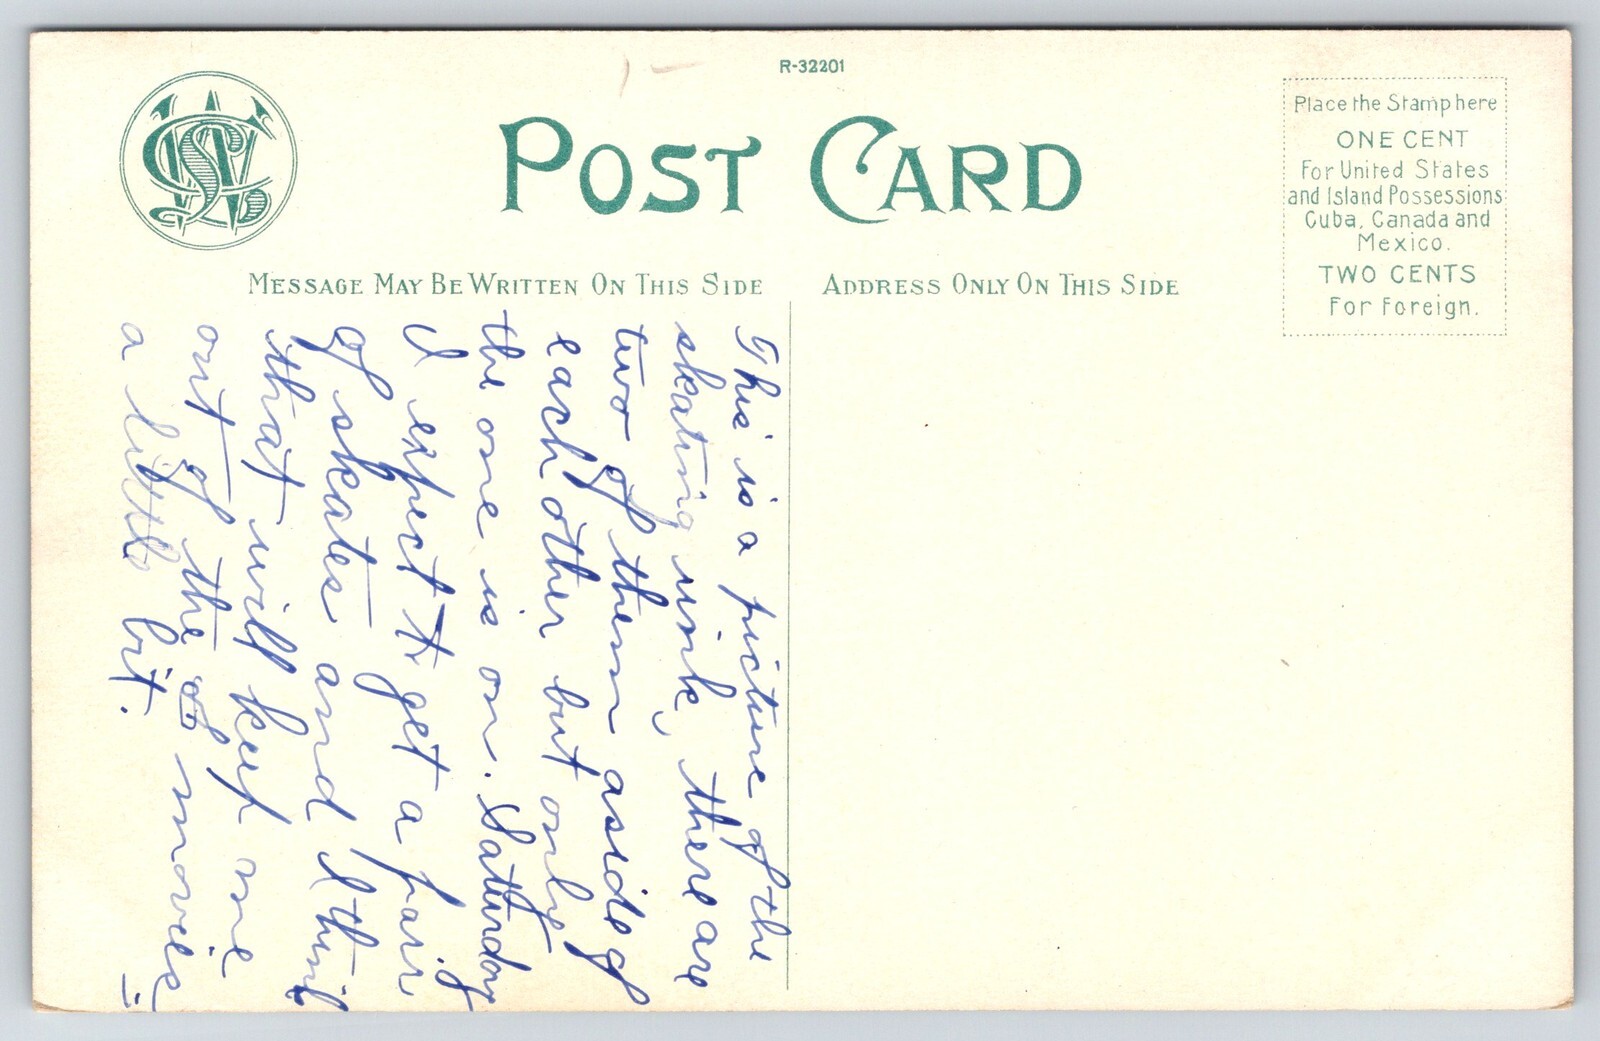 R-32201
POST CARD
MESSAGE MAY BE WRITTEN ON THIS SIDE
ADDRESS ONLY ON THIS SIDE
Place the Stamp here
ONE CENT
For United States
and Island Possessions
Cuba, Canada and
Mexico.
TWO CENTS
For Foreign.
This is a picture of the
skating rink, there are
two of them aside of
each other but only
the one is on. Saturday
I expect to get a pair
of skates and I think
that will keep me
out of the movies
a little bit.